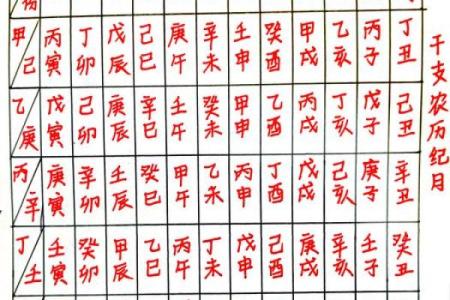 甲己 丙寅 丁卯 戊辰 己巳 庚午 辛未 壬申 癸酉 甲戌 乙亥 丙子 丁丑
乙庚 戊寅 己卯 庚辰 辛巳 壬午 癸未 甲申 乙酉 丙戌 丁亥 戊子 己丑
丙辛 庚寅 辛卯 壬辰 癸巳 甲午 乙未 丙申 丁酉 戊戌 己亥 庚子 辛丑
丁壬 壬寅 癸卯 甲辰 乙巳 丙午 丁未 戊申 己酉 庚戌 辛亥 壬子 癸丑
干支农历纪月